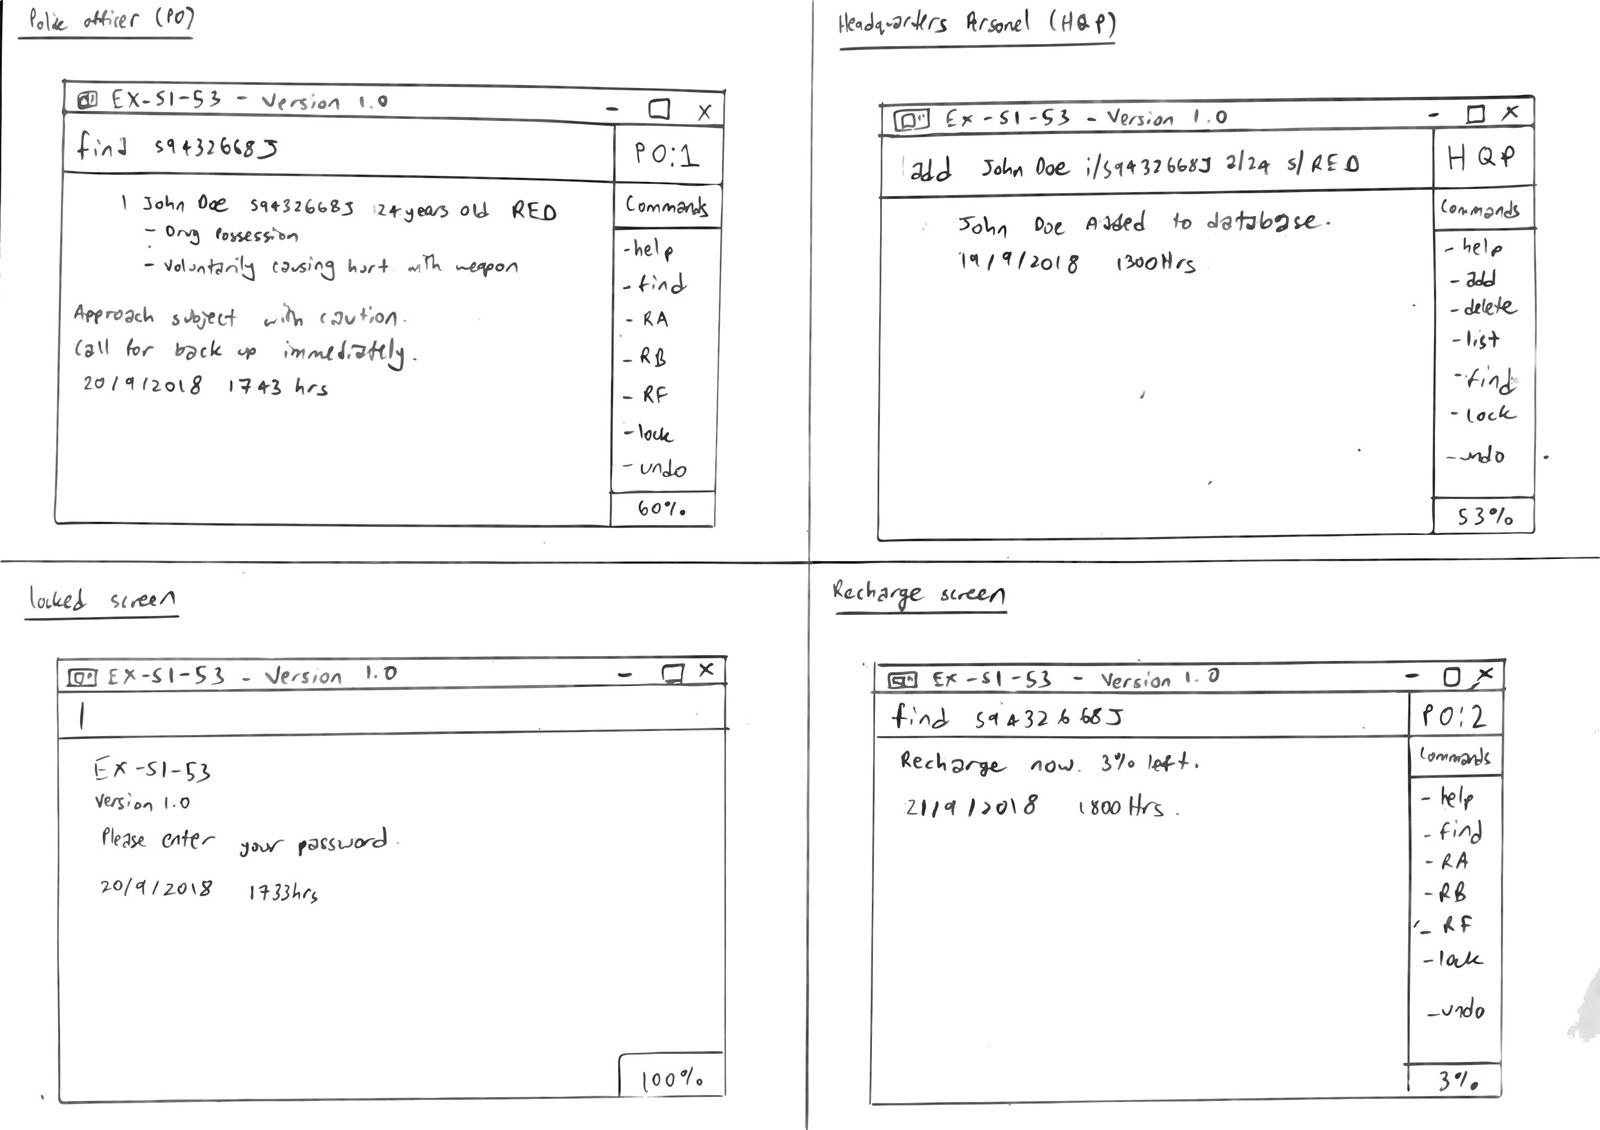 Police officer (PO)
EX-SI-53 - Version 1.0 - X
find S9432668J
PO:1
1 John Doe S9432668J 24 years old RED
- Drug Possession
- Voluntarily causing hurt with weapon
Approach subject with caution.
Call for back up immediately.
20/9/2018 1743 hrs
Commands
- help
- find
- RA
- RB
- RF
- lock
- undo
60%
Headquarters Personel (HQP)
EX-SI-53 - Version 1.0 - X
add John Doe i/S9432668J a/24 s/RED
HQP
John Doe Added to database.
19/9/2018 1300Hrs
Commands
- help
- add
- delete
- list
- find
- lock
- undo
53%
locked screen
EX-SI-53 - Version 1.0 - X
EX-SI-53
Version 1.0
Please enter your password.
20/9/2018 1733hrs
100%
Recharge screen
EX-SI-53 - Version 1.0 - X
find S9432668J
PO:2
Recharge now. 3% left.
21/9/2018 1800 Hrs.
Commands
- help
- find
- RA
- RB
- RF
- lock
- undo
3%